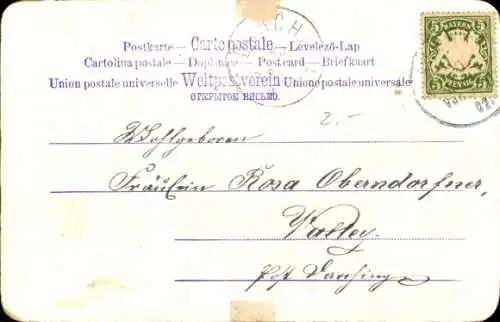 Postkarte — Carte postale — Levelező-Lap
Cartolina postale — Dopisnice — Post card — Briefkaart
Union postale universelle Weltpostverein Unione postale universale
ОТКРЫТОЕ ПИСЬМО.
5 BAYERN 5
5 PFENNIG 5
2.-
Wohlgeboren
Fräulein Rosa Oberndorfner,
Valley.
Post Darching